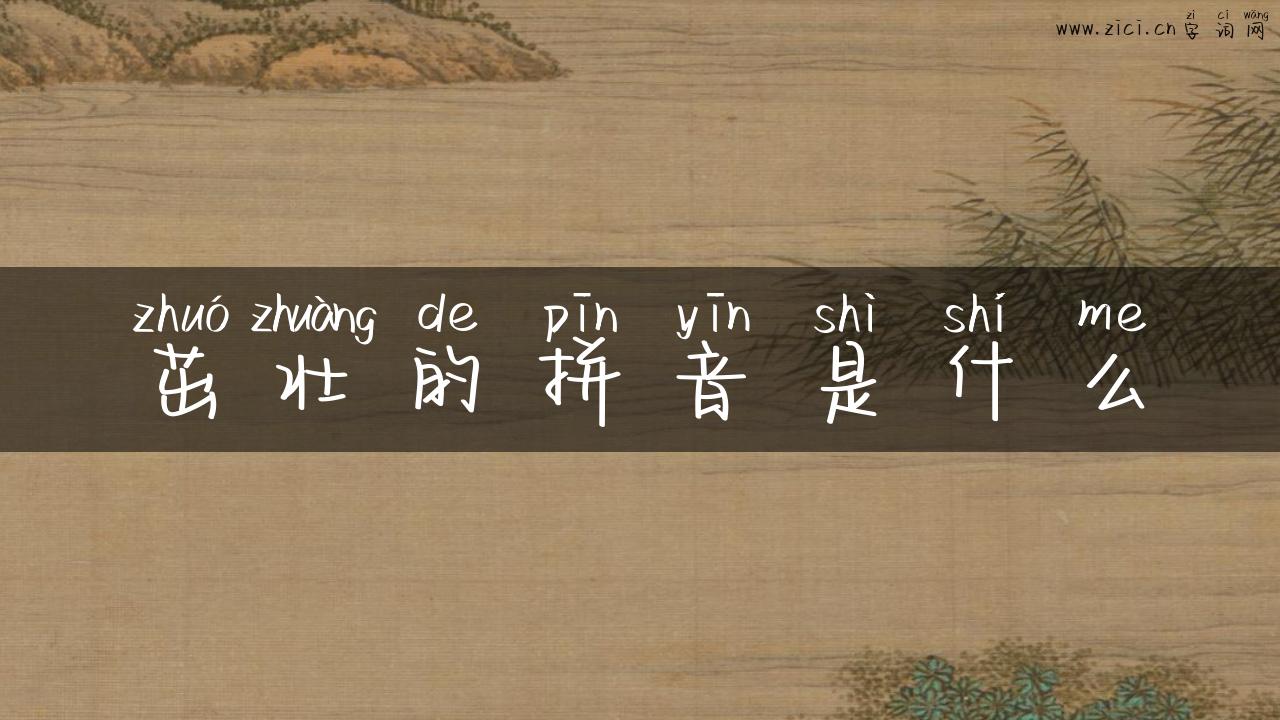 zì cí wǎng
www.zici.cn 字词网
zhuó zhuàng de pīn yīn shì shí me
茁壮的拼音是什么